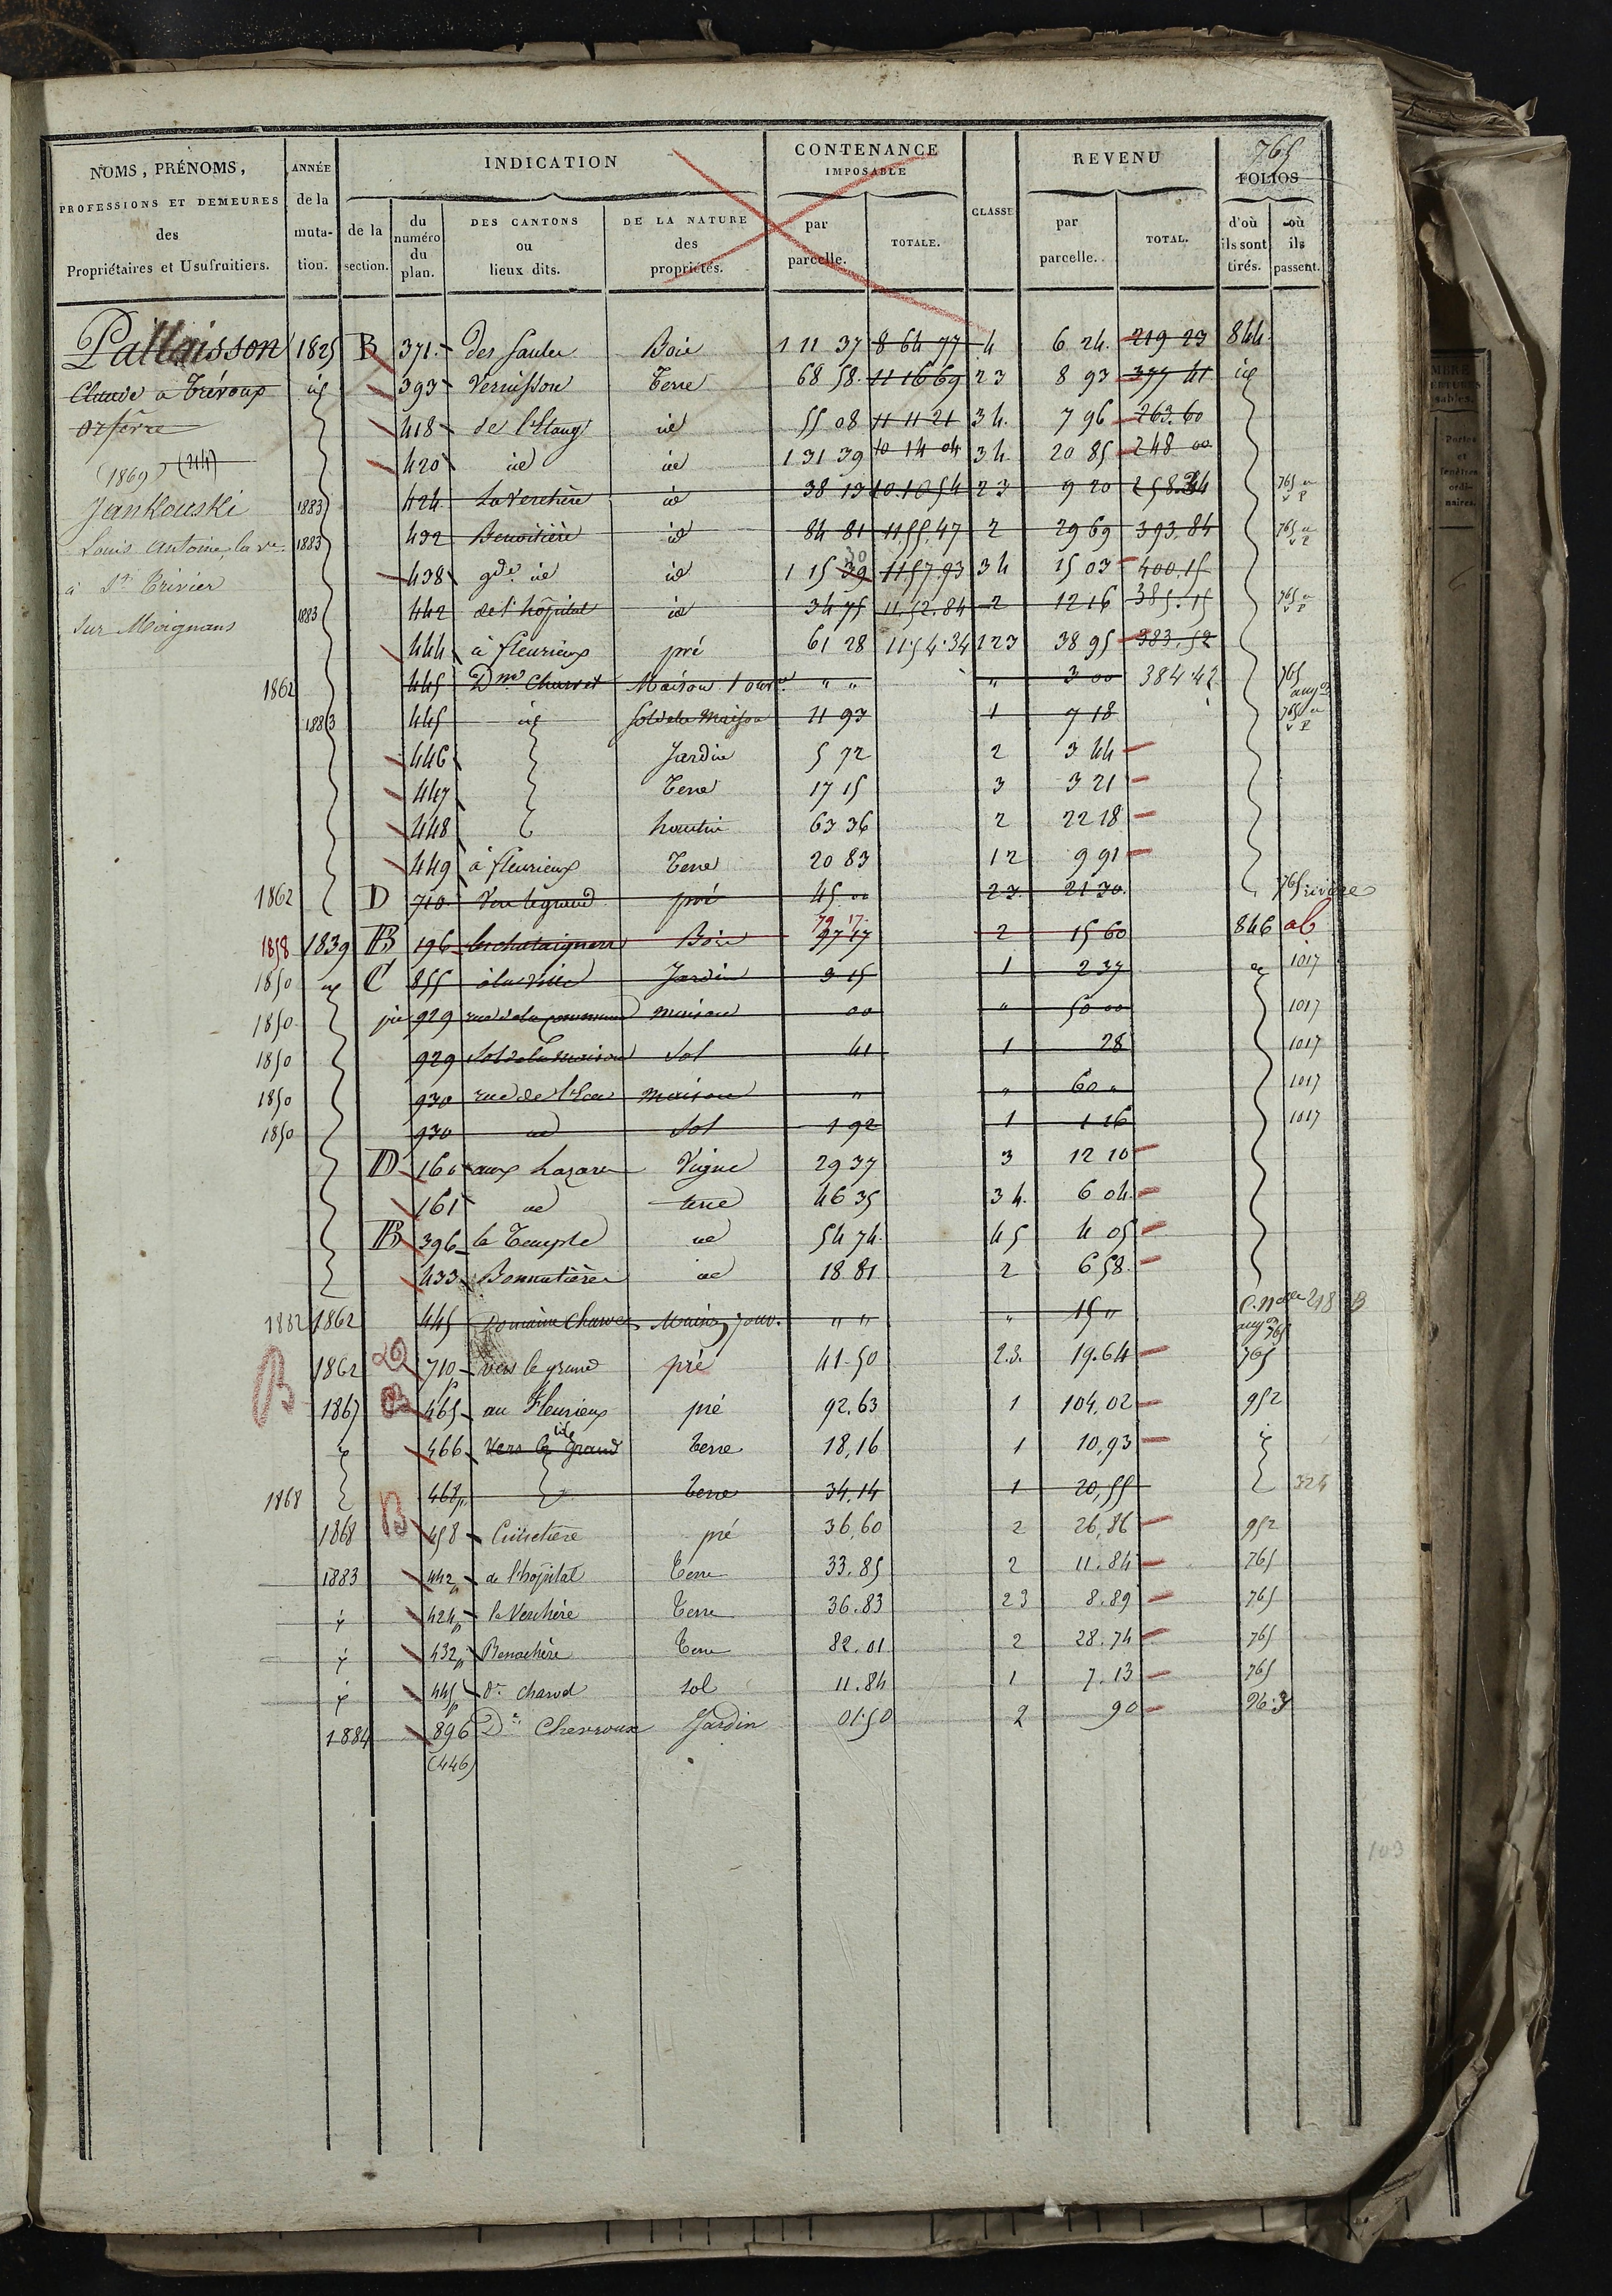 765
NOMS, PRÉNOMS, PROFESSIONS ET DEMEURES des Propriétaires et Usufruitiers.
ANNÉE de la muta-tion.
INDICATION
de la section.
du numéro du plan.
DES CANTONS ou lieux dits.
DE LA NATURE des propriétés.
CONTENANCE IMPOSABLE
par parcelle.
TOTALE.
CLASSE
REVENU
par parcelle.
TOTAL.
FOLIOS
d'où ils sont tirés.
où ils passent.
Pallaisson
Claude a Trévoux
orfèvre
(1869) (214)
Jankouski
Louis Antoine, la ve
à St Trivier
sur Moignans
1825 B 371 des Saules Bois 1 11 37 8 64 77 4 6 24 219 23 844
id 393 Vernisson Terre 68 58 11 16 69 2 3 8 93 377 41 id
418 de l'Etang id 55 08 11 11 21 3 4 7 96 263.60
420 id id 1 31 39 10 14 04 3 4 20 85 248 00
1883 424 La Verchère id 38 13 10.10 54 2 3 9 20 258.34 765
1883 432 id 84 81 11 55.47 2 29 69 393.84 765
438 gde id id 1 15 39 30 11 57.93 3 4 15 03 400.15
1883 442 de l'hôpital id 34 75 11.52.84 2 12 16 385.15 765
444 à fleurieux pré 61 28 11.54.34 1 2 3 38 95 383.52
1862 445 Dne Charvet Maison 1 ouv. " " " 3 00 384.42 765 augon
1883 445 id Sol de la Maison 11 93 1 7 18 765
446 Jardin 5 72 2 3 44
447 Terre 17 15 3 3 21
448 hautin 63 36 2 22 18
449 à fleurieux Terre 20 83 1 2 9 91
1862 D 710 Vers le grand pré 45 00 2 3 21 30 765
1858 1839 B 196 les chataigners Bois 97 17 79 17 2 15 60 846 ab
1850 id C 855 à la ville Jardin 3 15 1 2 37 id 1017
1850 929 rue de la commune maison 00 " 50 00 1017
1850 929 Sol de la maison Sol 41 1 28 1017
1850 930 rue de l' maison " " 60 " 1017
1850 930 id Sol 1 92 1 1 16 1017
D 160 aux Lazares Vigne 29 37 3 12 10
161 id terre 46 35 3 4 6 04
B 396 le Temple id 54 74 4 5 4 05
433 Bonnatières id 18 81 2 6 58
1882 1862 445 Domaine Charvet Maison 5 ouv. " " " 15 " 765
B 1862 D 710 vers le grand pré 41.50 2.3. 19.64 765
1867 B 465 au Fleurieux pré 92.63 1 104,02 952
id 466 Vers le Grand id Terre 18,16 1 10,93 id
1868 468p Terre 34,14 1 20,55 324
1868 B 458 pré 36,60 2 26,86 952
1883 442p de l'hôpital Terre 33.85 2 11.84 765
id 424p la Verchère Terre 36.83 2 3 8.89 765
id 432p Terre 82.01 2 28.74 765
id 445p sol 11.84 1 7.13 765
1884 896 Dne Chevroux Jardin 01.50 2 90 963
(446)
103